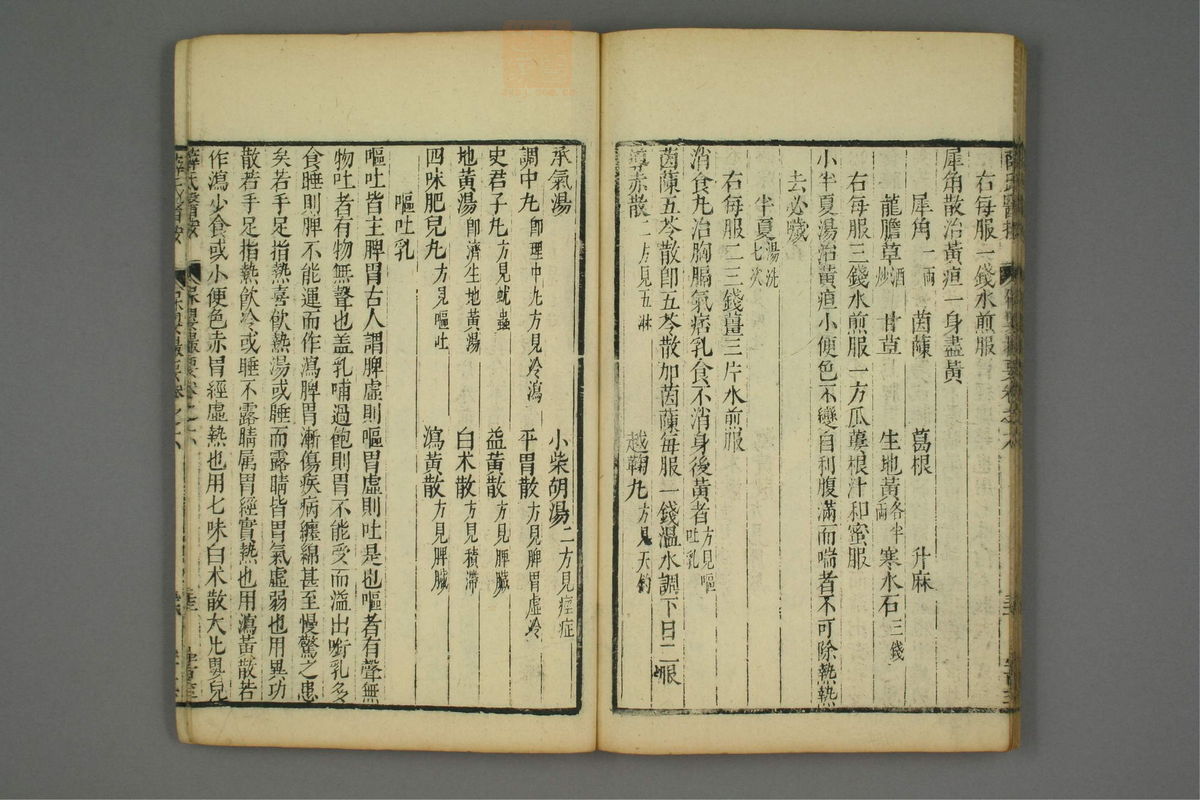 右每服一錢水煎服
犀角散治黃疸一身盡黃
犀角一兩 茵蔯 葛根 升麻
龍膽草酒炒 甘草 生地黃各半兩 寒水石三錢
右每服三錢水煎服一方瓜蔞根汁和蜜服
小半夏湯治黃疸小便色不變自利腹滿而喘者不可除熱熱
去必噦
半夏湯洗七次
右每服二三錢薑三片水煎服
消食丸治胸膈氣痞乳食不消身後黃者方見嘔吐乳
茵蔯五苓散卽五苓散加茵蔯每服一錢溫水調下日二服
導赤散二方見五淋 越鞠丸方見天釣
承氣湯 小柴胡湯二方見痙症
調中丸卽理中丸方見冷瀉 平胃散方見脾胃虛冷
史君子丸方見蚘蟲 益黃散方見脾臟
地黃湯卽濟生地黃湯 白朮散方見積滯
四味肥兒丸方見嘔吐 瀉黃散方見脾臟
嘔吐乳
嘔吐皆主脾胃古人謂脾虛則嘔胃虛則吐是也嘔者有聲無
物吐者有物無聲也盖乳哺過飽則胃不能受而溢出嗍乳多
食睡則脾不能運而作瀉脾胃漸傷疾病纏綿甚至慢驚之患
矣若手足指熱喜飲熱湯或睡而露睛皆胃氣虛弱也用異功
散若手足指熱飲冷或睡不露睛屬胃經實熱也用瀉黃散若
作瀉少食或小便色赤胃經虛熱也用七味白朮散大凡嬰兒
薛氏醫按 保嬰撮要卷之六